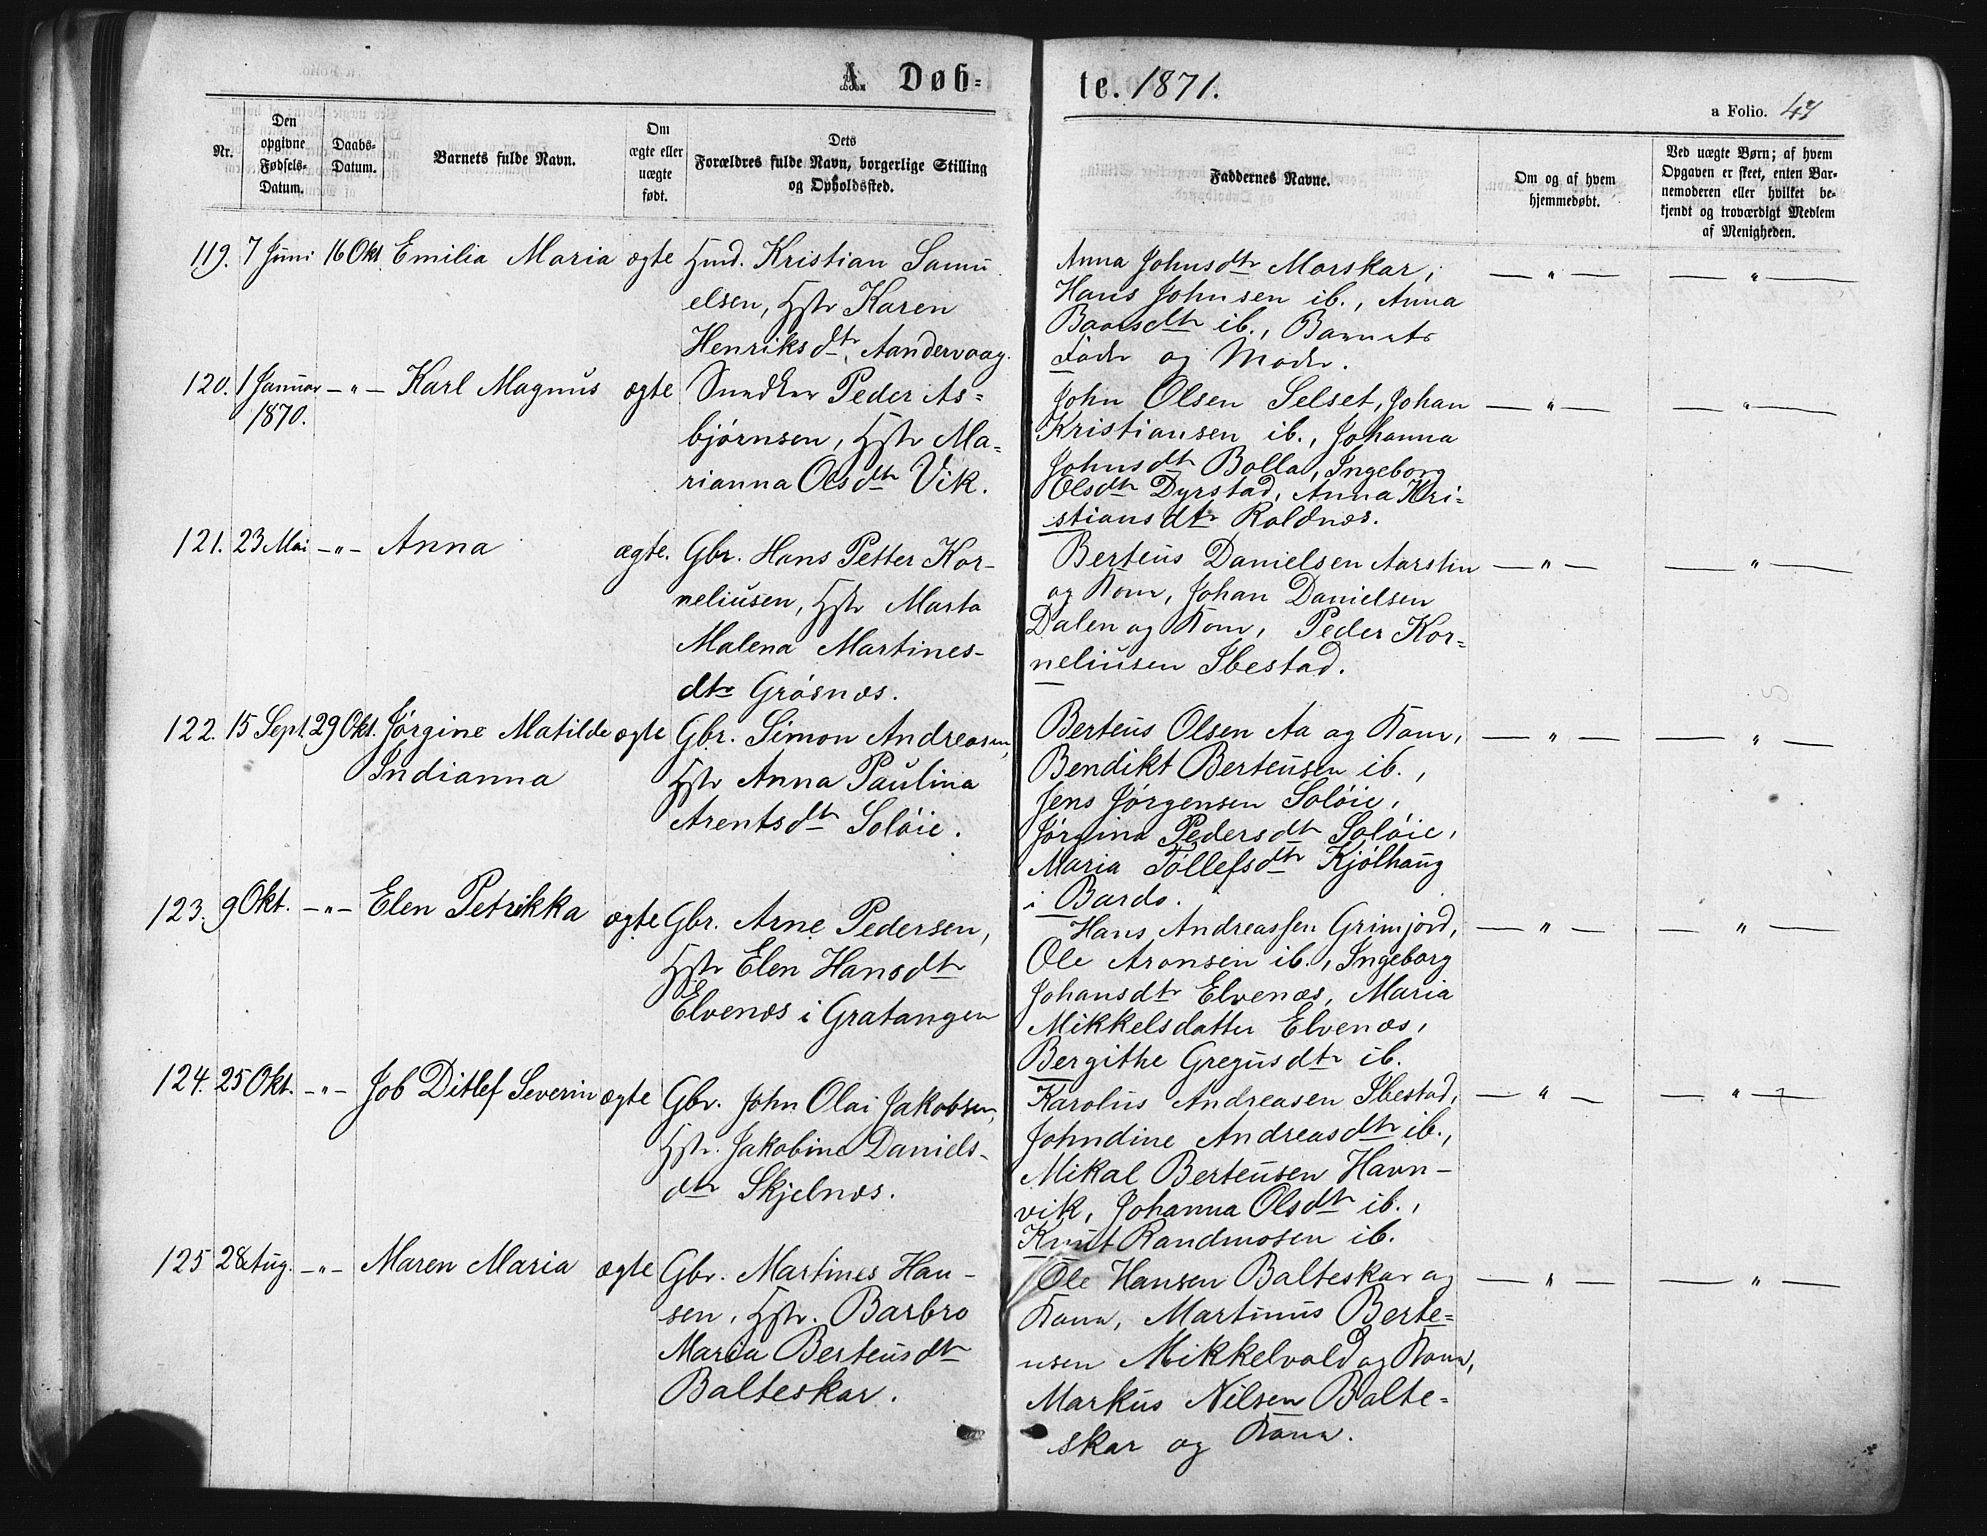 A Døb=
te. 1871.
a Folio. 47
Nr.
Den opgivne Fødsels-Datum.
Daabs-Datum.
Barnets fulde Navn.
Om ægte eller uægte født.
Dets Forældres fulde Navn, borgerlige Stilling og Opholdssted.
Faddernes Navne.
Om og af hvem hjemmedøbt.
Ved uægte Børn; af hvem Opgaven er skeet, enten Barnemoderen eller hvilket bekjendt og troværdigt Medlem af Menigheden.
119. 7 Juni 16 Okt Emilia Maria ægte Hmd. Kristian Samu
elsen, Hstr Karen
Henriksdtr, Aandervaag.
Anna Johnsdtr Marskar,
Hans Johnsen ib., Anna
Baarsdtr ib., Barnets
Fader og Moder.
— " — — " —
120. 1 Januar 1870. — " — Karl Magnus ægte Peder As=
bjørnsen, Hstr Ma=
rianna Olsdtr Vik.
John Olsen Selset, Johan
Kristiansen ib., Johanna
Johnsdtr Bolla, Ingeborg
Olsdtr Dyrstad, Anna Kri=
stiansdtr Roldnæs.
— " — — " —
121. 23 Mai — " — Anna ægte. Gbr. Hans Petter Kor-
neliusen, Hstr Marta
Malena Martines-
dtr Gråsnæs.
Berteus Danielsen Aarstin
og Kone, Johan Danielsen
Dalen og Kone, Peder Kor=
neliusen Ibestad.
— " — — " —
122. 15 Sept. 29 Okt. Jørgine Matilde ægte Gbr. Simon Andreasen,
Indianna
Hstr Anna Paulina
Arentsdtr Soløie.
Berteus Olsen Aa og Kone,
Bendikt Berteusen ib.,
Jens Jørgensen Soløie,
Jørgina Pedersdtr Soløie,
Maria Tollefsdtr Kjølhaug
i Bardo.
— " — — " —
123. 9 Okt. — " — Elen Petrikka ægte Gbr. Arne Pedersen,
Hstr Elen Hansdtr
Elvenæs i Gratangen
Hans Andreassen Grimjord,
Ole Aronsen ib., Ingeborg
Johansdtr Elvenæs, Maria
Mikkelsdatter Elvenæs,
Bergithe Gregusdtr ib.
— " — — " —
124. 25 Okt. — " — Job Ditlef Severin ægte Gbr. John Olai Jakobsen,
Hstr. Jakobine Daniels-
dtr Skjelnæs.
Karolus Andreasen Ibestad,
Johndine Andreasdtr ib.,
Mikal Berteusen Havn-
vik, Johanna Olsdtr ib.,
Knut Randmosen ib.
— " — — " —
125 28 Aug. — " — Maren Maria ægte Gbr. Martines Han-
sen, Hstr. Barbro
Maria Berteusdtr
Balteskar.
Ole Hansen Balteskar og
Kone, Martinus Berte=
usen Mikkelvold og Kone,
Markus Nilsen Balte=
skar og Kone.
— " — — " —